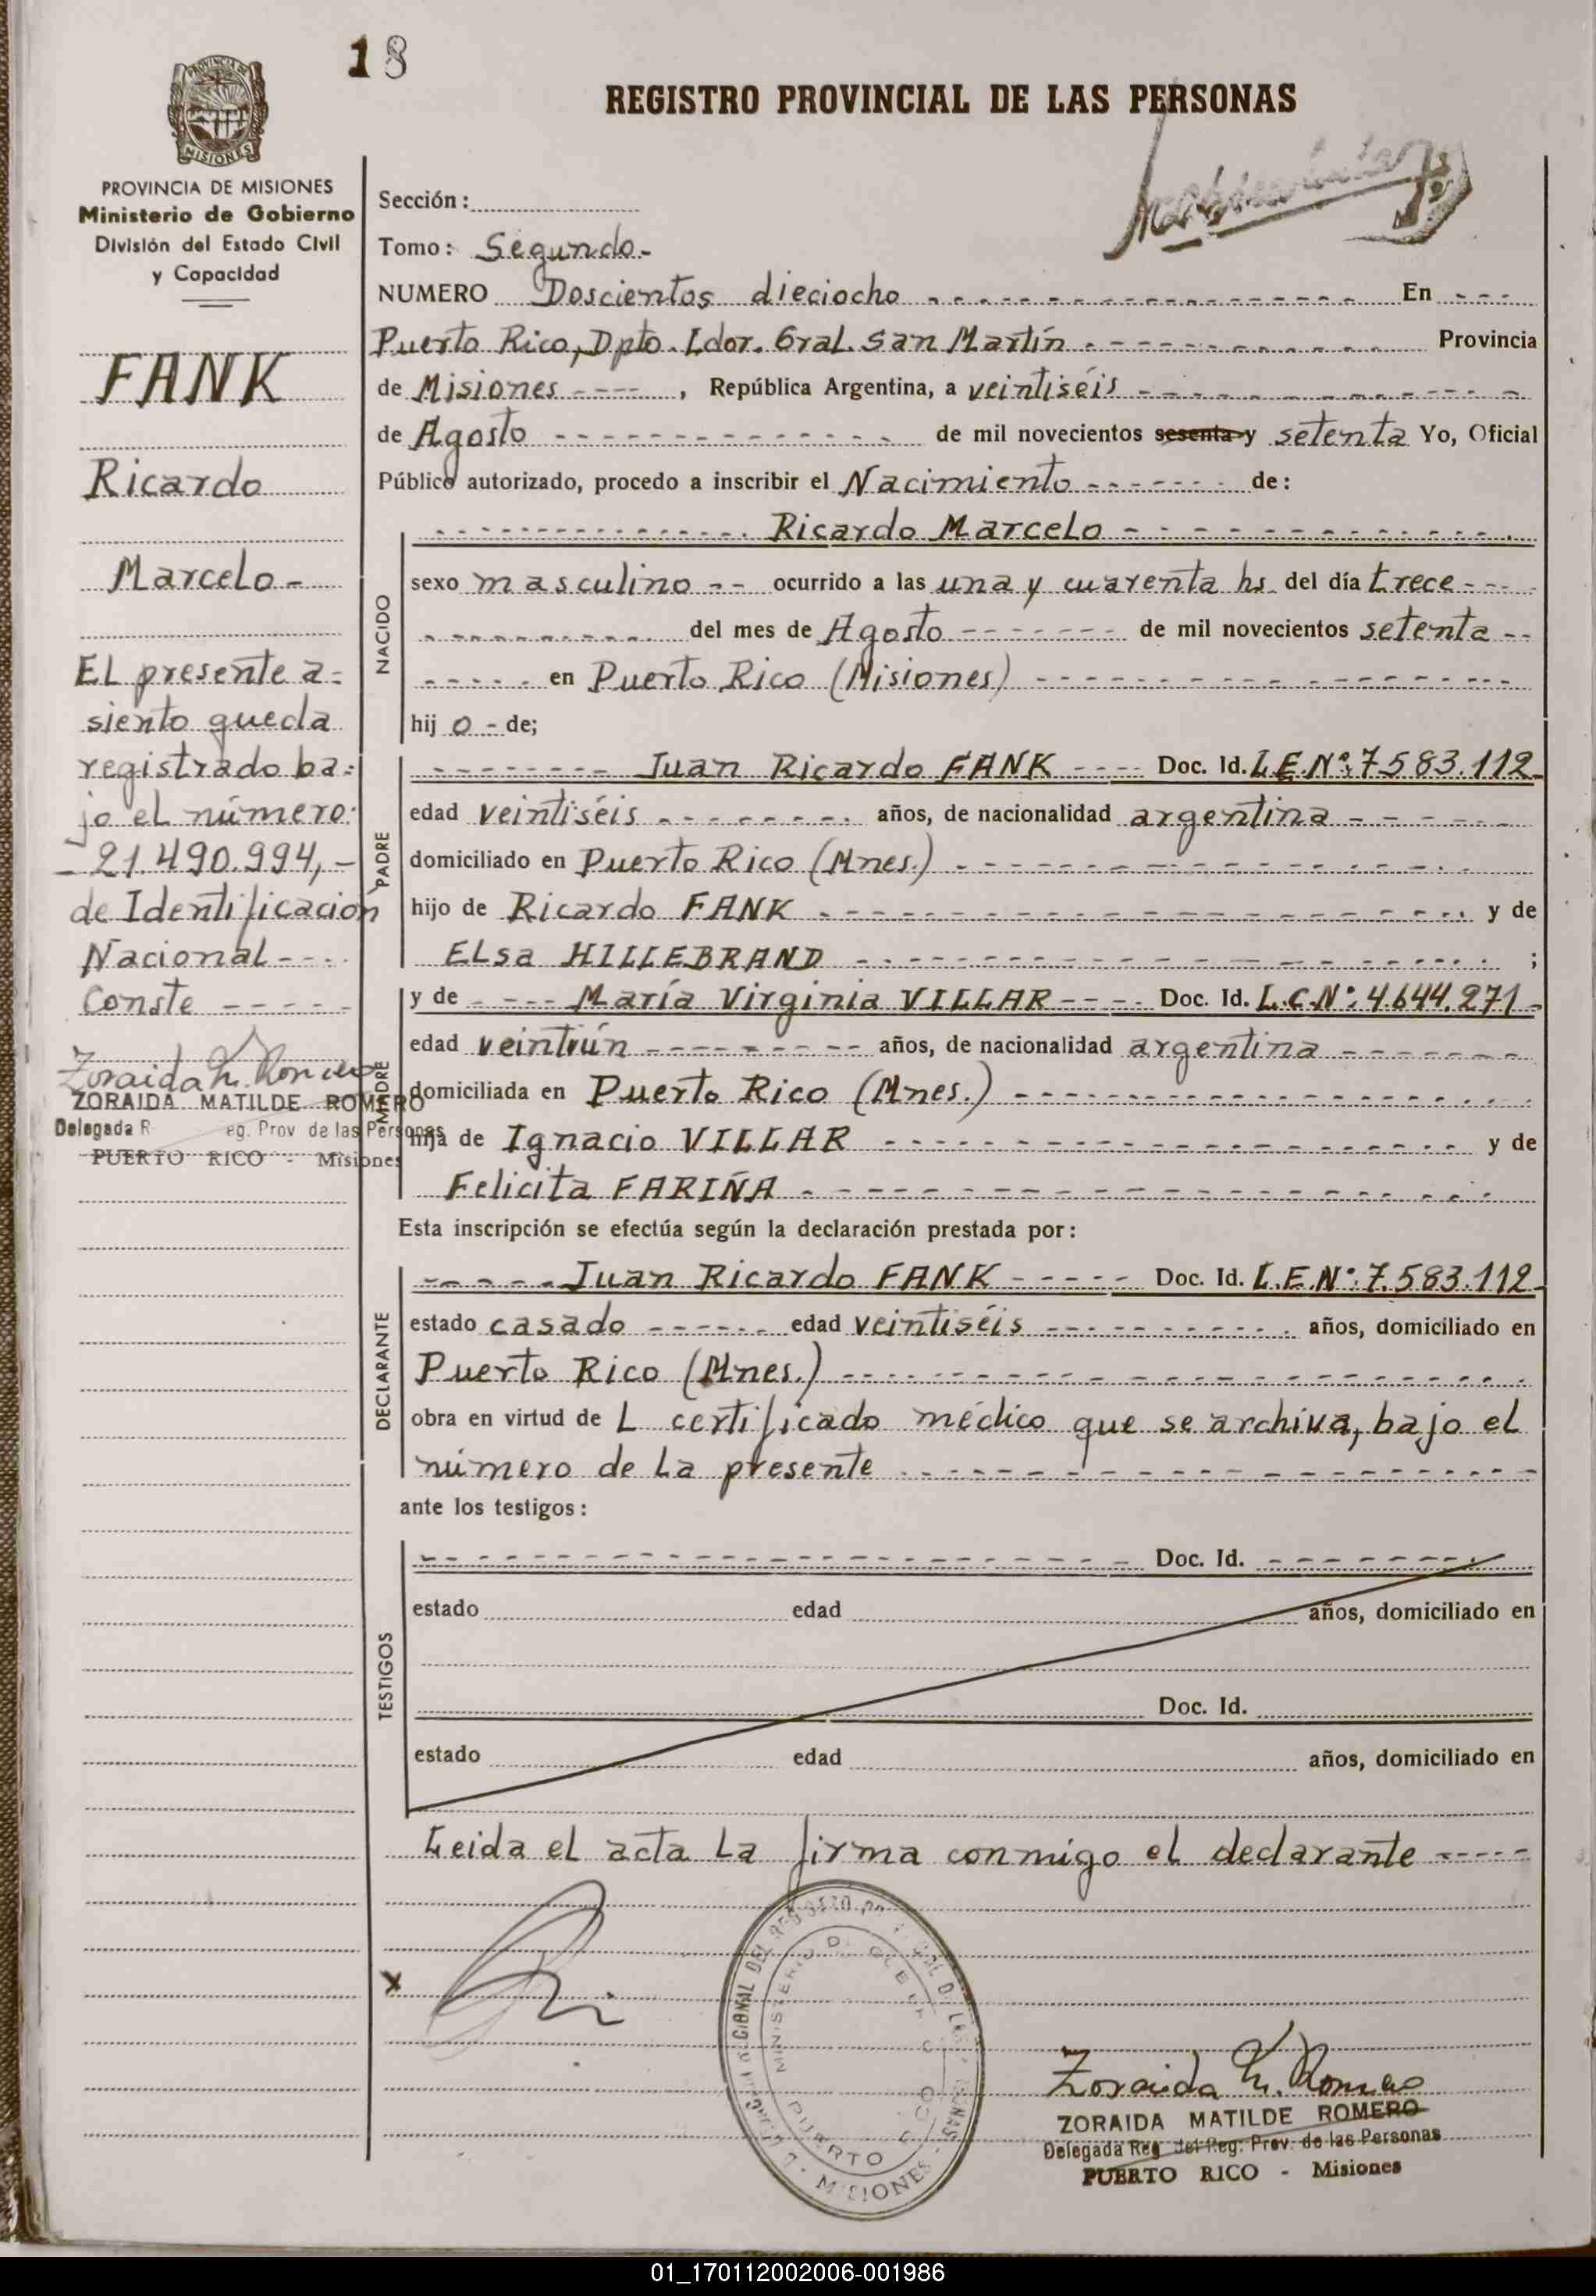 18
REGISTRO PROVINCIAL DE LAS PERSONAS
PROVINCIA DE
MISIONES
PROVINCIA DE MISIONES
Ministerio de Gobierno
División del Estado Civil
y Capacidad
FANK
Ricardo
Marcelo -
EL presente a=
siento queda
registrado ba=
jo el número:
- 21.490.994, -
de Identificación
Nacional - - -
Conste - - - - -
Zoraida M. Romero
ZORAIDA MATILDE ROMERO
Delegada R eg. Prov de las Personas
PUERTO RICO - Misiones
Sección:
Tomo: Segundo. -
NUMERO Doscientos dieciocho - - - En - - -
Puerto Rico, Dpto. Ldor. Gral. San Martín. - - - Provincia
de Misiones - - - -, República Argentina, a veintiséis - - -
de Agosto - - - de mil novecientos sesenta y setenta Yo, Oficial
Público autorizado, procedo a inscribir el Nacimiento - - - de:
NACIDO
- - - Ricardo Marcelo - - -
sexo masculino - - ocurrido a las una y cuarenta hs. del día trece - - -
- - - del mes de Agosto - - - de mil novecientos setenta - -
- - - en Puerto Rico (Misiones) - - -
hij o - de;
PADRE
- - - Juan Ricardo FANK - - - Doc. Id. L.E.Nº: 7.583.112 -
edad veintiséis - - - años, de nacionalidad argentina - - -
domiciliado en Puerto Rico (Mnes.) - - -
hijo de Ricardo FANK - - - y de
ELsa HILLEBRAND - - - ;
MADRE
y de - - - María Virginia VILLAR - - - Doc. Id. L.C.Nº: 4.644.271 -
edad veintiún - - - años, de nacionalidad argentina - - -
domiciliada en Puerto Rico (Mnes.) - - -
hija de Ignacio VILLAR - - - y de
Felicita FARIÑA - - -
Esta inscripción se efectúa según la declaración prestada por:
DECLARANTE
- - - Juan Ricardo FANK - - - Doc. Id. L.E.Nº: 7.583.112 -
estado casado - - - edad veintiséis - - - años, domiciliado en
Puerto Rico (Mnes.) - - -
obra en virtud de L certificado médico que se archiva, bajo el
número de La presente - - -
ante los testigos:
TESTIGOS
- - - Doc. Id. - - -
estado edad años, domiciliado en
Doc. Id.
estado edad años, domiciliado en
Leida el acta La firma conmigo el declarante - - -
x
MINISTERIO DE
PUERTO RICO
MISIONES
Zoraida M. Romero
ZORAIDA MATILDE ROMERO
Delegada Reg. del Reg. Prov. de las Personas
PUERTO RICO - Misiones
01_170112002006-001986